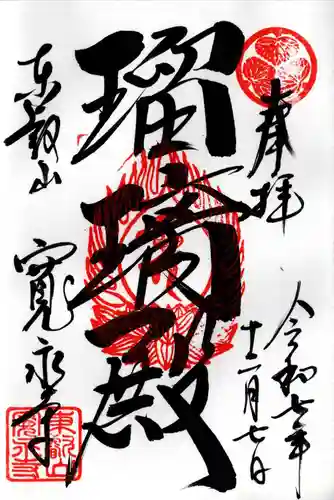 奉拝
令和七年
十二月七日
瑠璃殿
東叡山
寛永寺
東叡山
寛永寺